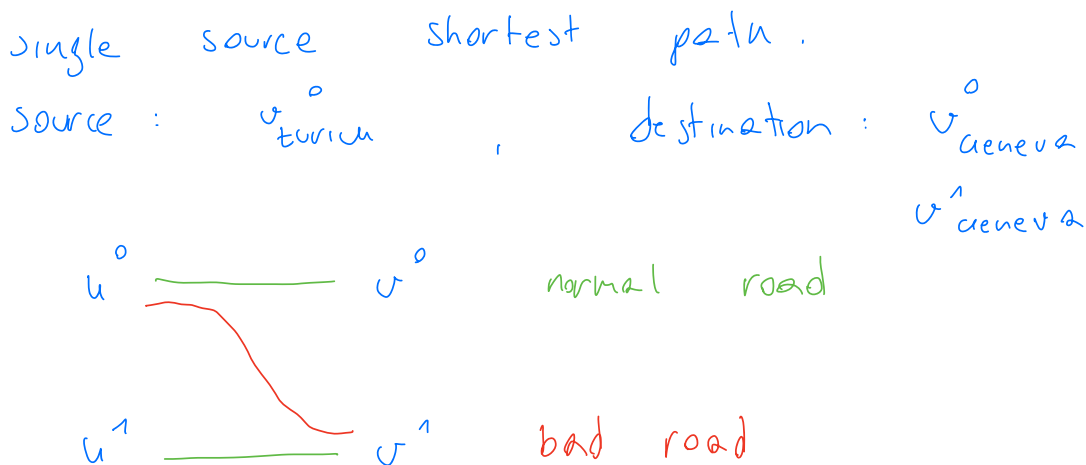 single source shortest path.
source: v⁰ zurich, destination: v⁰ geneva
v¹ geneva
u⁰ v⁰ normal road
u¹ v¹ bad road